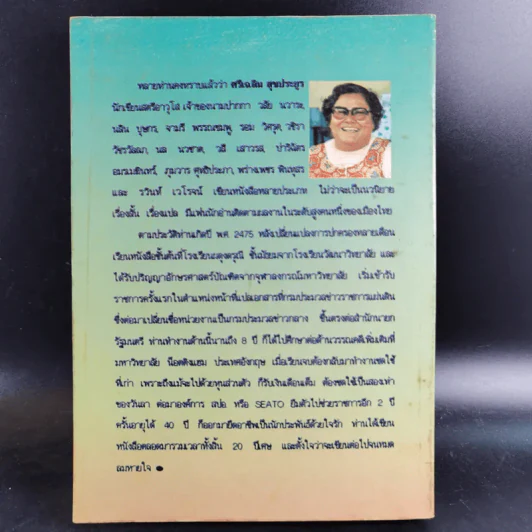 หลายท่านคงทราบแล้วว่า ศรีเฉลิม สุขประยูร
นักเขียนสตรีอาวุโส เจ้าของนามปากกา วลัย นวาระ,
นลิน บุษกร, จามรี พรรณชมพู,
วัชรวัลลภ, นล
และ รวินท์ เวโรจน์ เขียนหนังสือหลายประเภท ไม่ว่าจะเป็นนวนิยาย
เรื่องสั้น เรื่องแปล มีแฟนนักอ่านติดตามผลงานในระดับสูงคนหนึ่งของเมืองไทย
ตามประวัติท่านเกิดปี พ.ศ. 2475 หลังเปลี่ยนแปลงการปกครองหลายเดือน
เรียนหนังสือชั้นต้นที่โรงเรียนผดุงดรุณี ชั้นมัธยมจากโรงเรียนวัฒนาวิทยาลัย และ
ได้รับปริญญาอักษรศาสตร์บัณฑิตจากจุฬาลงกรณ์มหาวิทยาลัย เริ่มเข้ารับ
ราชการครั้งแรกในตำแหน่งหน้าที่แปลเอกสารที่กรมประมวลข่าวราชการแผ่นดิน
ซึ่งต่อมาเปลี่ยนชื่อหน่วยงานเป็นกรมประมวลข่าวกลาง ขึ้นตรงต่อสำนักนายก
รัฐมนตรี ท่านทำงานด้านนี้นานถึง 8 ปี ก็ได้ไปศึกษาต่อด้านวรรณคดีเพิ่มเติมที่
มหาวิทยาลัย น็อตติงแฮม ประเทศอังกฤษ เมื่อเรียนจบต้องกลับมาทำงานชดใช้
ที่เก่า เพราะถึงแม้จะไปด้วยทุนส่วนตัว ก็รับเงินเดือนเต็ม ต้องชดใช้เป็นสองเท่า
ของวันลา ต่อมาองค์การ สปอ. หรือ SEATO ยืมตัวไปช่วยราชการอีก 2 ปี
ครั้นอายุได้ 40 ปี ก็ออกมายึดอาชีพเป็นนักประพันธ์ด้วยใจรัก ท่านได้เขียน
หนังสือตลอดมารวมเวลาทั้งสิ้น 20 ปีเศษ และตั้งใจว่าจะเขียนต่อไปจนหมด
ลมหายใจ ●